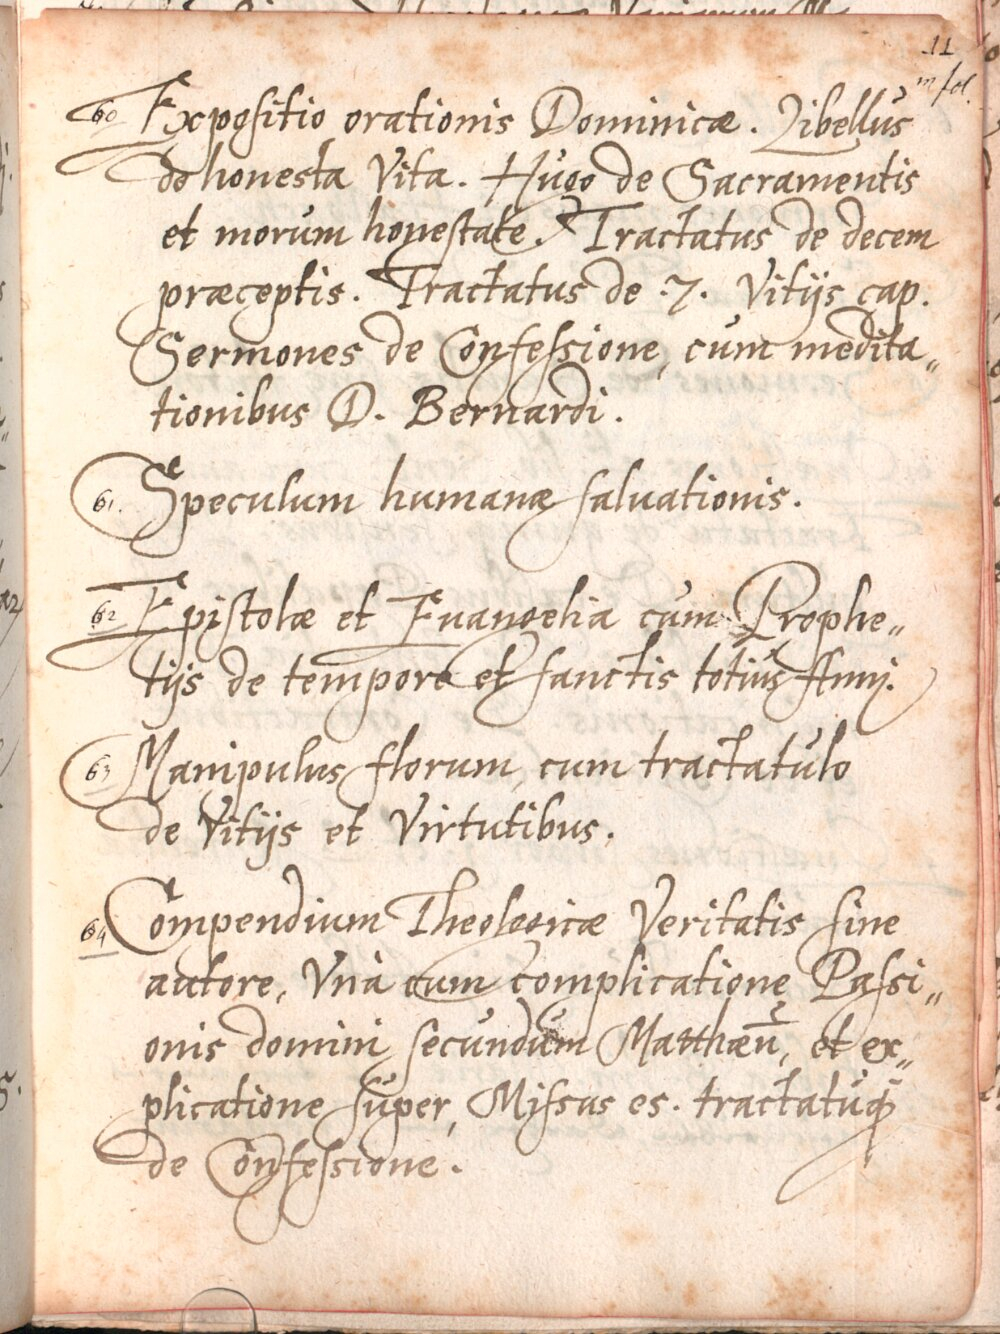 11
in fol.
60 Expositio orationis Dominicæ. Libellus
de honesta Vita. Hugo de Sacramentis
et morum honestate. Tractatus de decem
præceptis. Tractatus de .7. Vitijs cap.
Sermones de Confessione, cum medita„
tionibus D. Bernardi.
61. Speculum humanæ saluationis.
62 Epistolæ et Euangelia cum Prophe„
tijs de tempore et sanctis totius Anni.
63 Manipulus florum, cum tractatulo
de Vitijs et Virtutibus.
64 Compendium Theologicæ Veritatis sine
autore, Vnà cum complicatione Passi„
onis domini secundum Matthæū, et ex„
plicatione super, Missus es. tractatuq́
de Confessione.